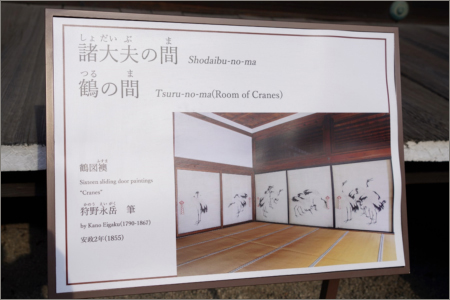 しょだいぶ ま
諸大夫の間 Shodaibu-no-ma
つる ま
鶴の間 Tsuru-no-ma(Room of Cranes)
ふすま
鶴図襖
Fusuma sliding door paintings
"Cranes"
かのう えいがく
狩野永岳 筆
by Kano Eigaku(1790-1867)
安政2年(1855)